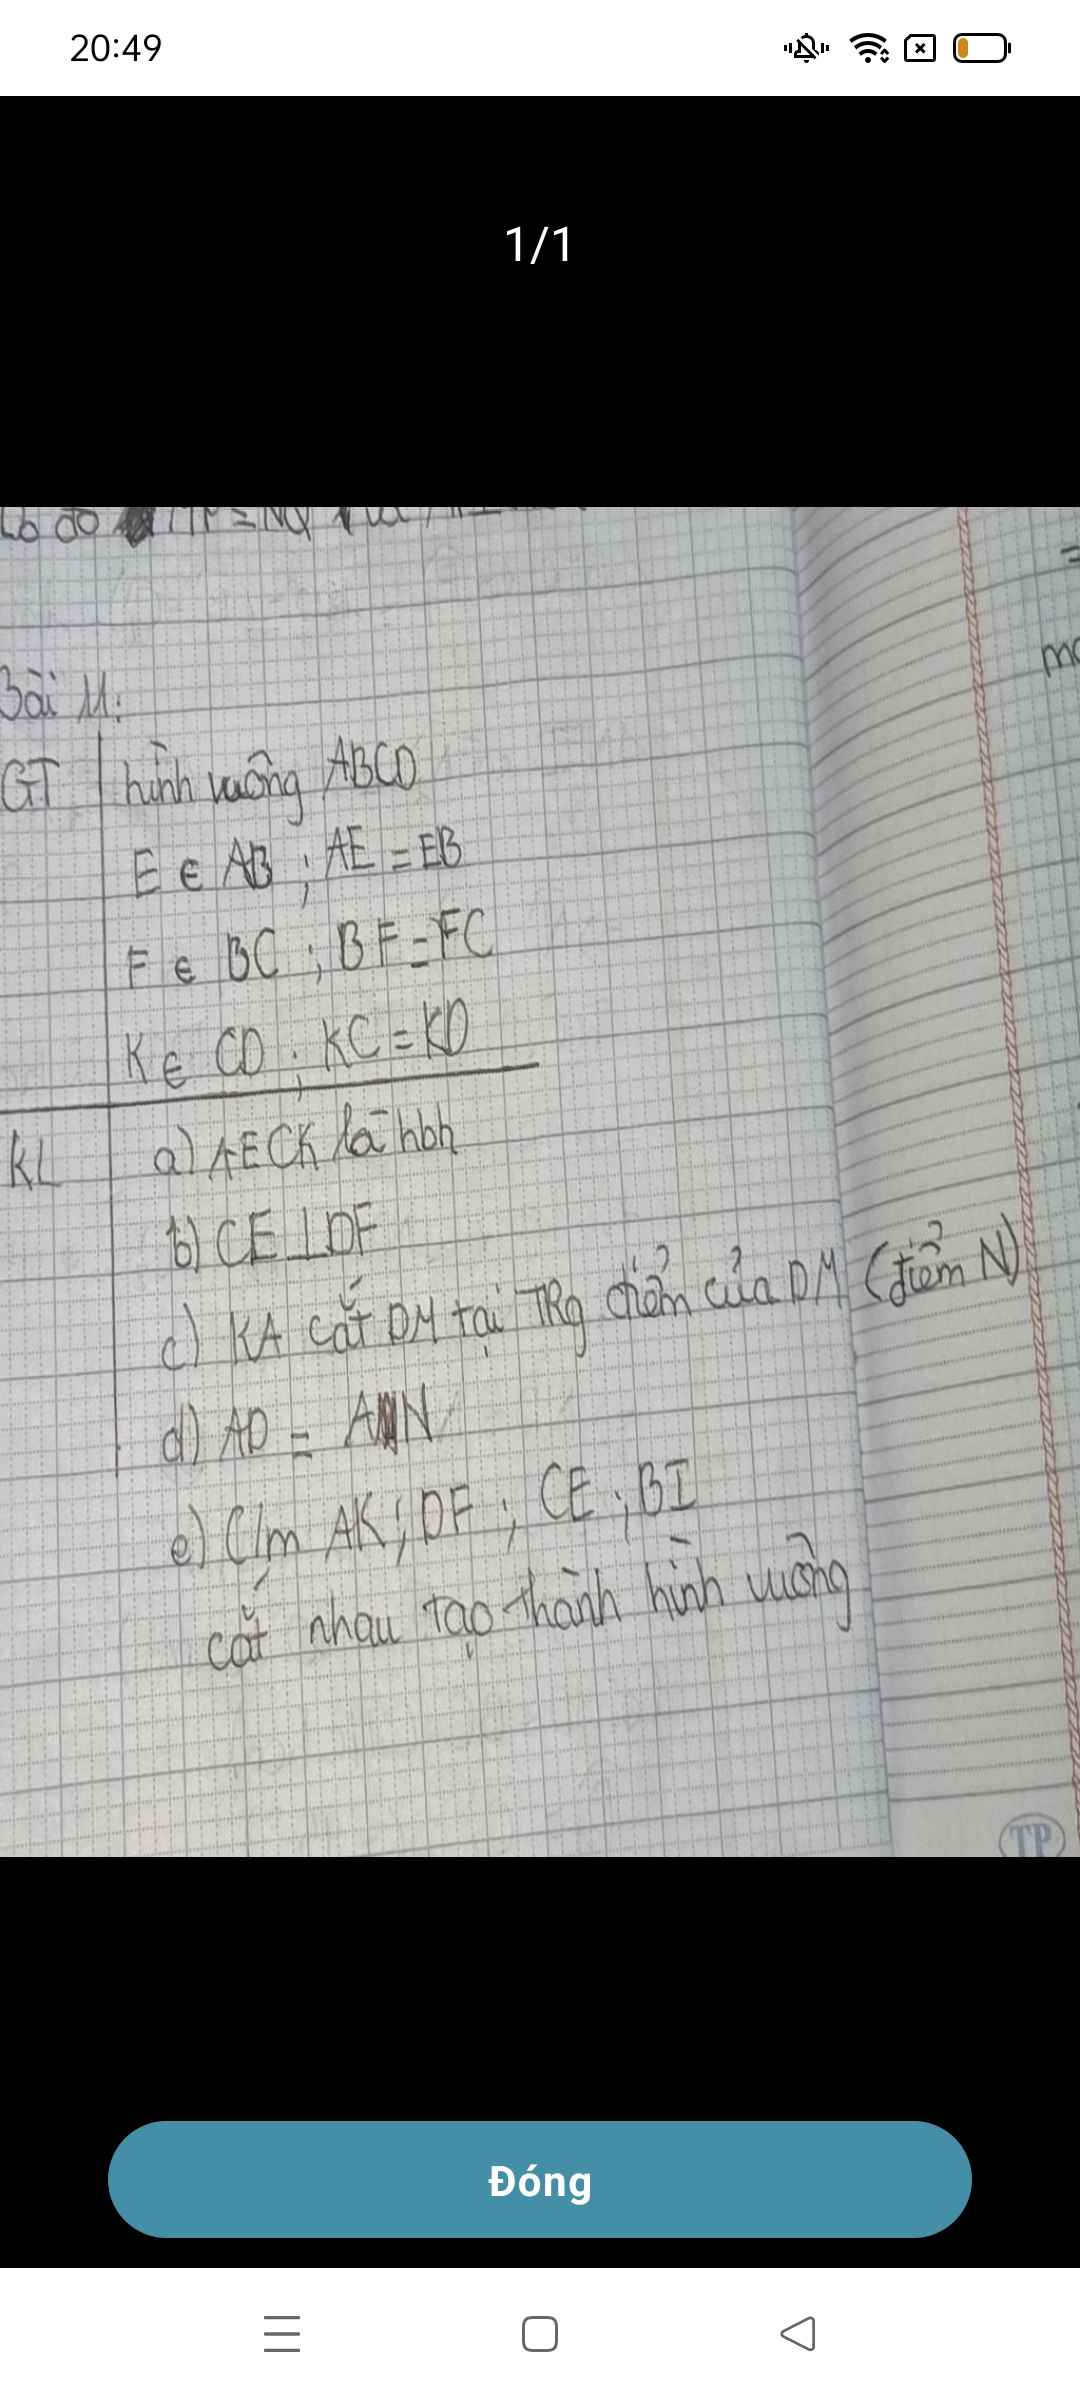 20:49
1/1
Bài 11:
GT hình vuông ABCD
E ∈ AB ; AE = EB
F ∈ BC ; BF = FC
K ∈ CD ; KC = KD
KL a) AECK là hbh
b) CE ⊥ DF
c) KA cắt DM tại TRg điểm của DM (điểm N)
d) AD = AN
e) C/m AK ; DF ; CE ; BI
cắt nhau tạo thành hình vuông
TP
Đóng